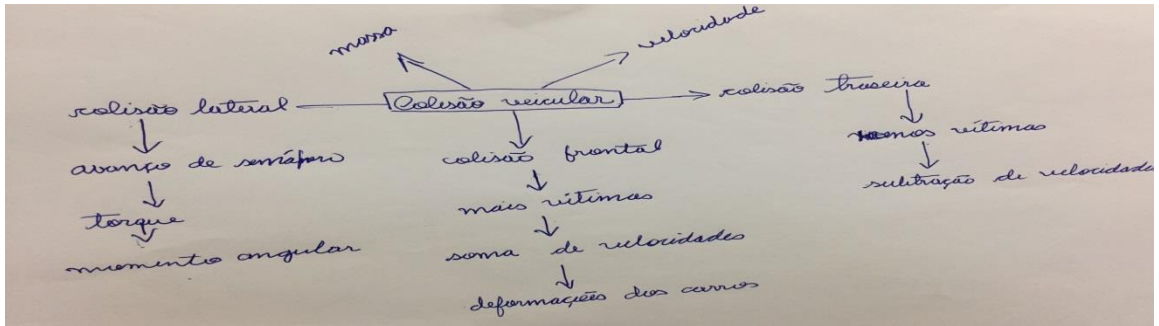 massa
velocidade
colisão lateral
Colisão veicular
colisão traseira
avanço de semáforo
torque
momento angular
colisão frontal
mais vítimas
soma de velocidades
deformações dos carros
menos vítimas
subtração de velocidades